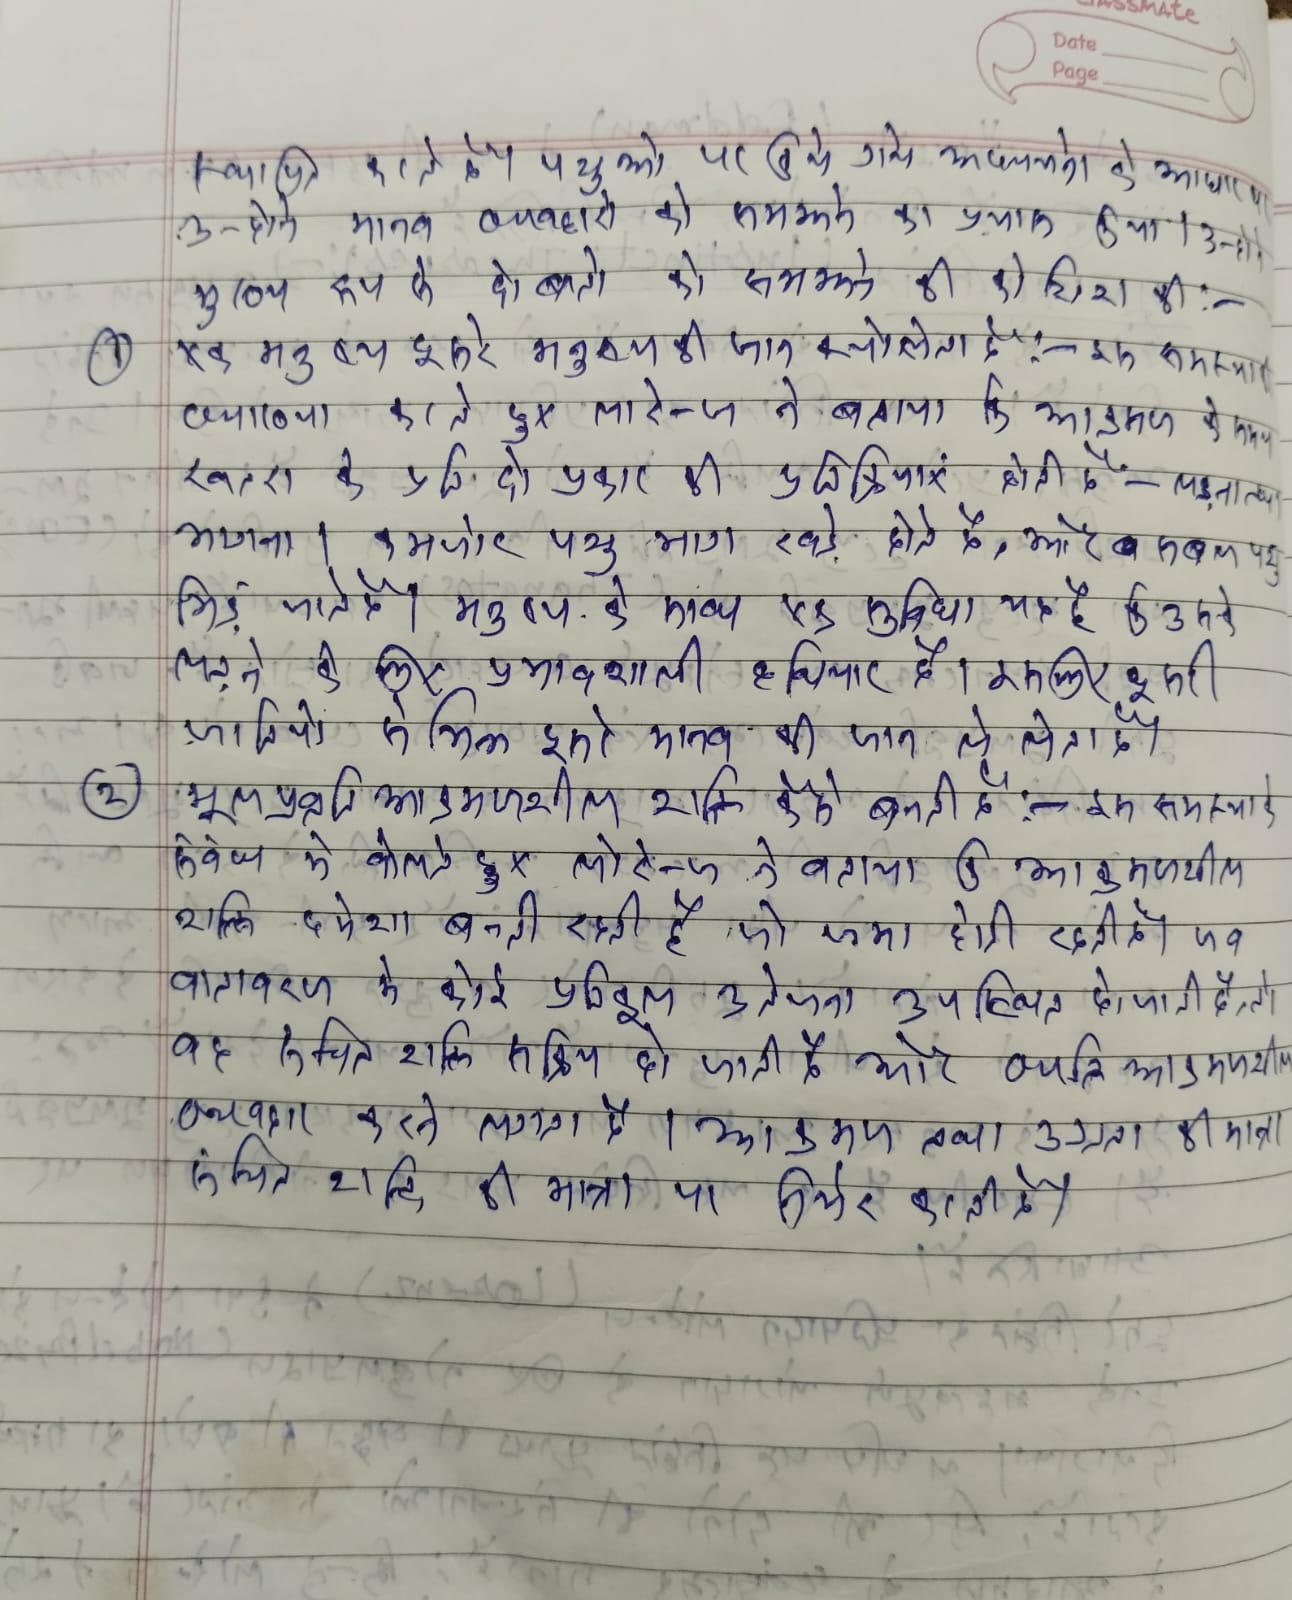 CLASSMATE
Date
Page
स्थापित करते है। पशुओ पर किये गये अध्ययनो के आधार पर
उन्होने मानव व्यवहारो को समझने का प्रयास किया। उन्होने
मुख्य रूप से दो बातो को समझने की कोशिश की :-
① एक मनुष्य दूसरे मनुष्य की जान क्यो लेता है :- इस समस्या
व्याख्या करते हुए लारेन्ज ने बताया कि आक्रमण के समय
खतरा के प्रति दो प्रकार की प्रतिक्रियाएं होती है - लड़ना तथा
भागना। कमजोर पशु भाग खड़े होते है, और सबल पशु
भिड़ जाते है। मनुष्य के साथ एक सुविधा यह है कि उसके
लड़ने के लिए प्रभावशाली हथियार है। इसलिए दूसरी
जातियो से भिन्न दूसरे मानव की जान ले लेता है।
② मूलप्रवृति आक्रमणशील शक्ति कैसे बनती है :- इस समस्या के
संबंध मे बोलते हुए लोरेन्ज ने बताया कि आक्रमणशील
शक्ति हमेशा बनती रहती है जो जमा होती रहती है। जब
वातावरण मे कोई प्रतिकूल उतेजना उपस्थित हो जाती है तो
वह संचित शक्ति सक्रिय हो जाती है और व्यक्ति आक्रमणशील
व्यवहार करने लगता है। आक्रमण तथा उग्रता की मात्रा
संचित शक्ति की मात्रा पर निर्भर करती है।